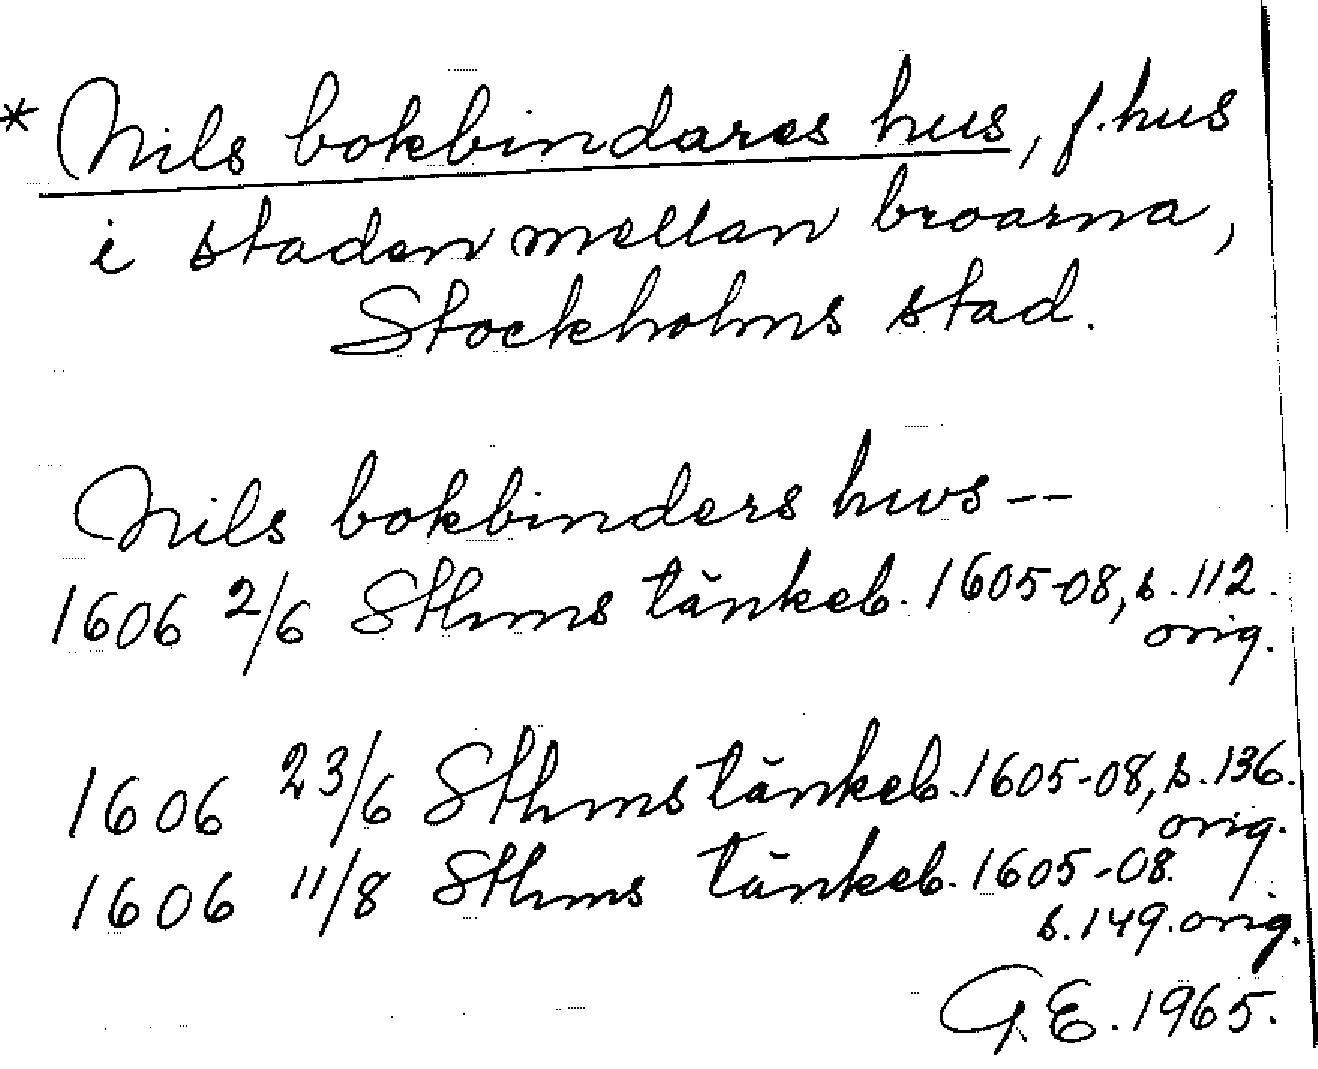 * Nils bokbindares hus, f. hus
i staden mellan broarna,
Stockholms stad.
Nils bokbinders hws --
1606 2/6 Sthms tänkeb. 1605-08, s. 112.
orig.
1606 23/6 Sthms tänkeb. 1605-08, s. 136.
orig.
1606 11/8 Sthms tänkeb. 1605-08.
s. 149. orig.
G.E. 1965.